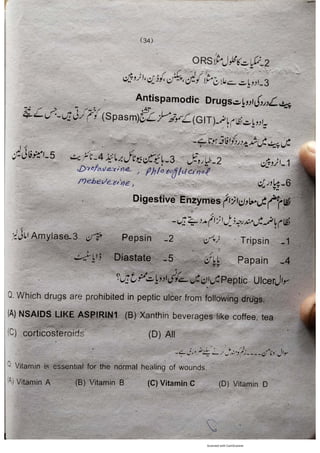 (34)
2۔نمکیات کا محلول مثلاً ORS
3۔ادویات سے علاج مثلاً کولین، پیکٹن، کوڈین، ایٹروپین
پیٹ کے درد کی ادویات Antispamodic Drugs
یہ ادویات نظام ہاضمہ (GIT) کے سموتھ مسلز کے تشنج (Spasm) کو ختم کرتی ہیں۔جس کے نتیجے
میں پیٹ میں شدید درد کا افاقہ ہوتا ہے۔
1۔ایٹروپین 3۔ہائیوسین بیوٹائل برومائیڈ 4۔نائٹریٹ 5۔امینوفائی لین
Drotavexine, phloroglucinol
Mebevexine,
6۔پیپاورین
نظام ہضم میں معاون انزائم Digestive Enzymes
نظام ہاضمہ میں مندرجہ ذیل انزائم مدد دیتے ہیں۔
1۔ Tripsin ٹرپسن 2۔ Pepsin پیپسن 3۔Amylase امائی لیز
4۔ Papain پاپائن 5۔ Diastate ڈایاسٹیٹ
سوال Peptic Ulcer میں ان میں سے کونسی ادویات ممنوع ہیں؟
Q. Which drugs are prohibited in peptic ulcer from following drugs.
(A) NSAIDS LIKE ASPIRIN1 (B) Xanthin beverages like coffee, tea
(C) corticosteroids (D) All
سوال وٹامن۔۔۔۔۔زخم کو مندمل کرنے کیلئے ضروری ہے۔
Q. Vitamin is essential for the normal healing of wounds.
(A) Vitamin A (B) Vitamin B (C) Vitamin C (D) Vitamin D
Scanned with CamScanner